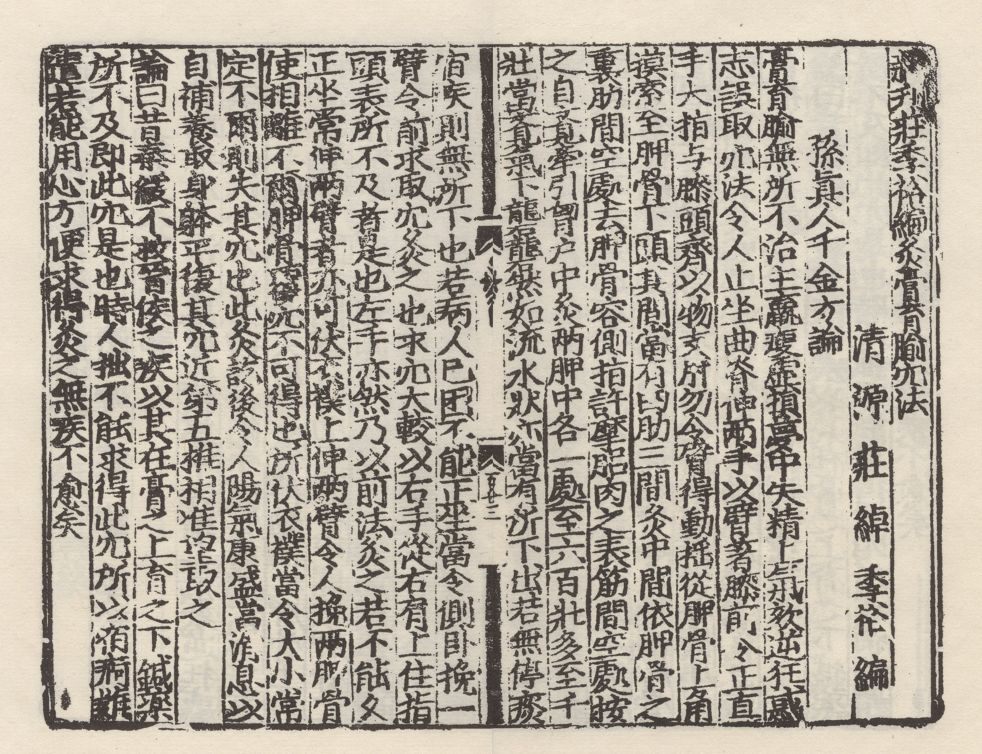 新刋莊季裕編灸膏肓腧穴法
清源莊綽季裕編
孫眞人千金方論
膏肓腧無所不治主羸瘦虛損夢中失精上氣欬逆狂惑
忘誤取穴法令人正坐曲脊伸兩手以臂著膝前令正直
手大指与膝頭齊以物支肘勿令臂得動摇從胛骨上角
摸索至胛骨下頭其間當有四肋三間灸中間依胛骨之
裏肋間空處去胛骨容側指許摩䏚肉之表筋間空處按
之自覺牽引胷户中灸兩胛中各一處至六百壯多至千
壯當覺氣下礲礲然如流水狀亦當有所下出若無停痰
宿疾則無所下也若病人已困不能正坐當令側卧挽一
臂令前求取穴灸之也求穴大較以右手從右肩上住指
頭表所不及者是也左手亦然乃以前法灸之若不能久
正坐當伸兩臂者亦可伏衣襆上伸兩臂令人挽兩胛骨
使相離不爾胛骨覆穴不可得也所伏衣襆當令大小常
定不爾則失其穴也此灸訖後令人陽氣康盛當消息以
自補養取身體平復其穴近第五椎相准望取之
論曰昔秦緩不救晉侯之疾以其在膏之上肓之下鍼藥
所不及即此穴是也時人拙不能求得此穴所以宿痾難
遣若能用心方便求得灸之無疾不愈矣